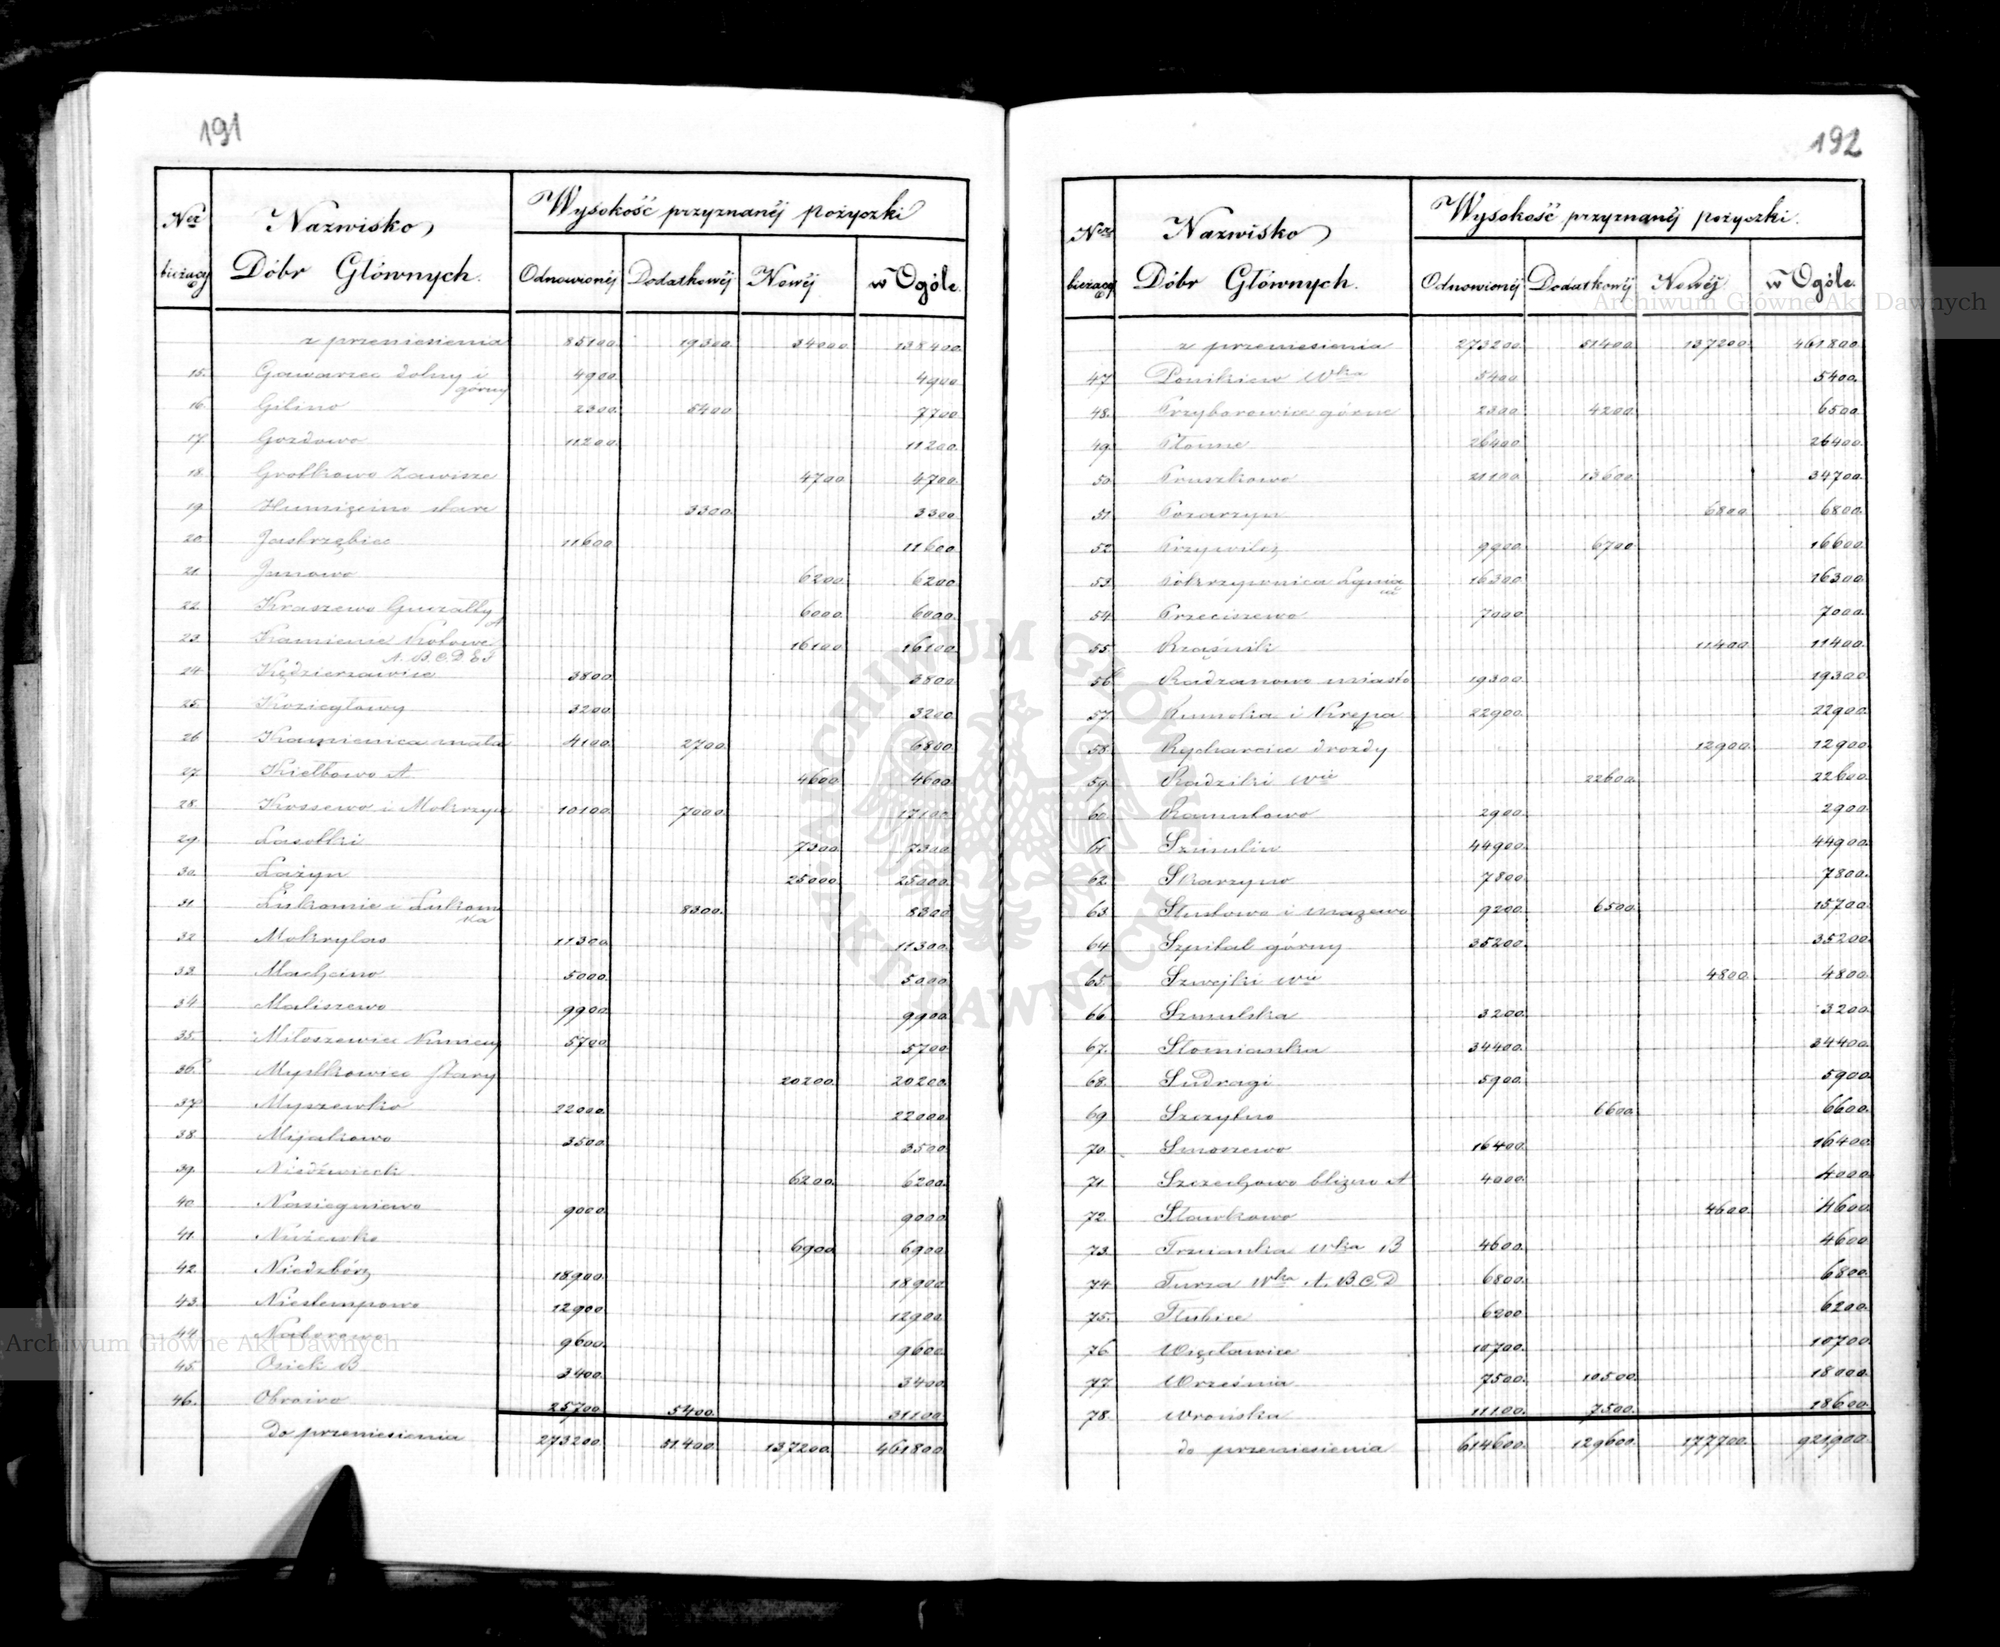 191
Ner bieżący Nazwisko Dóbr Głównych. Wysokość przyznanéj pożyczki
Odnowionéj Dodatkowéj Nowéj w Ogóle.
z przeniesienia 85100. 19300. 34000. 138400.
15. Gawarzec dolny i górny 4900. 4900
16. Gilino 2300. 5400 7700
17. Gozdowo 11200. 11200.
18. Grotkowo Zawisze 4700 4700.
19. Humięcino stare 3300. 3300
20. Jastrzębiec 11600 11600.
21. Junowo 6200 6200.
22. Kraszewo Gwizdały A 6000. 6000.
23. Kamienie Kotowe A. B. C. D E F 16100 16100.
24. Kędzierzawice 3800. 3800.
25. Koziegłowy 3200. 3200
26. Kamienica mała 4100 2700. 6800
27. Kiełbowo A 4600 4600
28. Kossewo i Mokrzyce 10100 7000. 17100
29. Lasotki 7300 7300
30. Łążyn 25000 25000.
31. Łukomie i Łukomka 8300. 8300
32. Mokrylas 11300. 11300.
33. Machcino 5000. 5000.
34. Maliszewo 9900 9900
35. Miłoszewice Kumery 5700 5700
36. Mystkowiec stary 20200. 20200.
37. Myszewko 22000. 22000.
38. Mijakowo 3500. 3500.
39. Niedźwiedź 6200. 6200.
40. Nasiegniewo 9000. 9000.
41. Niżewko 6900 6900.
42. Niedzbórz 18900. 18900.
43. Niestempowo 12900 12900.
44. Naborowo 9600. 9600
45. Osiek B 3400. 3400.
46. Obrąwo 25700 5400. 31100.
do przeniesienia 273200. 51400. 137200. 461800.
192
Ner bieżący Nazwisko Dóbr Głównych. Wysokość przyznanéj pożyczki.
Odnowionéj Dodatkowéj Nowéj w Ogóle.
z przeniesienia 273200. 51400 137200. 461800.
47. Ponikiew Wka 5400 5400.
48. Przyborowice górne 2300 4200. 6500.
49. Płonne 26400. 26400.
50. Pruszkowo 21100 13600. 34700.
51. Pozarzyn 6800 6800.
52. Przywilcz 9900. 6700 16600.
53. 16300 16300.
54. Przeciszewo 7000 7000.
55. Rząśniki 11400 11400
56. Radzanowo miasto 19300 19300.
57. Rumoka i Krępa 22900. 22900.
58. Rycharcice drozdy 12900. 12900
59. Radziki Wie 22600. 22600.
60. Ramutowo 2900. 2900.
61. Szumlin 44900. 44900.
62. Skarzyno 7800. 7800.
63. Słustowo i Mazewo 9200 6500. 15700
64. Szpital górny 35200. 35200.
65. Szwejki Wie 4800. 4800.
66. Szumlska 3200. 3200
67. Słomianka 34400. 34400.
68. Sudragi 5900. 5900
69. Szczytno 6600. 6600.
70. Smoszewo 16400 16400.
71. Szczechowo blizno A 4000. 4000.
72. Sławkowo 4600. 4600.
73. Trzcianka Wka B 4600. 4600.
74. Turza Wka A. B. C. D 6800. 6800.
75. Tłubice 6200 6200.
76. Więcławice 10700. 10700.
77. Września 7500. 10500. 18000.
78. Wrońska 11100. 7500. 18600.
do przeniesienia 614600. 129600. 177700. 921900.
Archiwum Główne Akt Dawnych
ARCHIWUM GŁÓWNE AKT DAWNYCH
Archiwum Główne Akt Dawnych